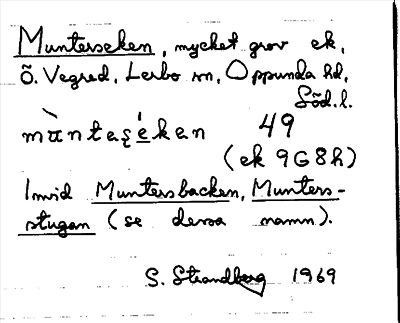 Munterseken, mycket grov ek,
Ö. Vegred, Lerbo sn, Oppunda hd,
Söd. l.
mùntaʂékan 49
(ek 9G8h)
Invid Muntersbacken, Munters-
stugan (se dessa namn).
S. Strandberg 1969